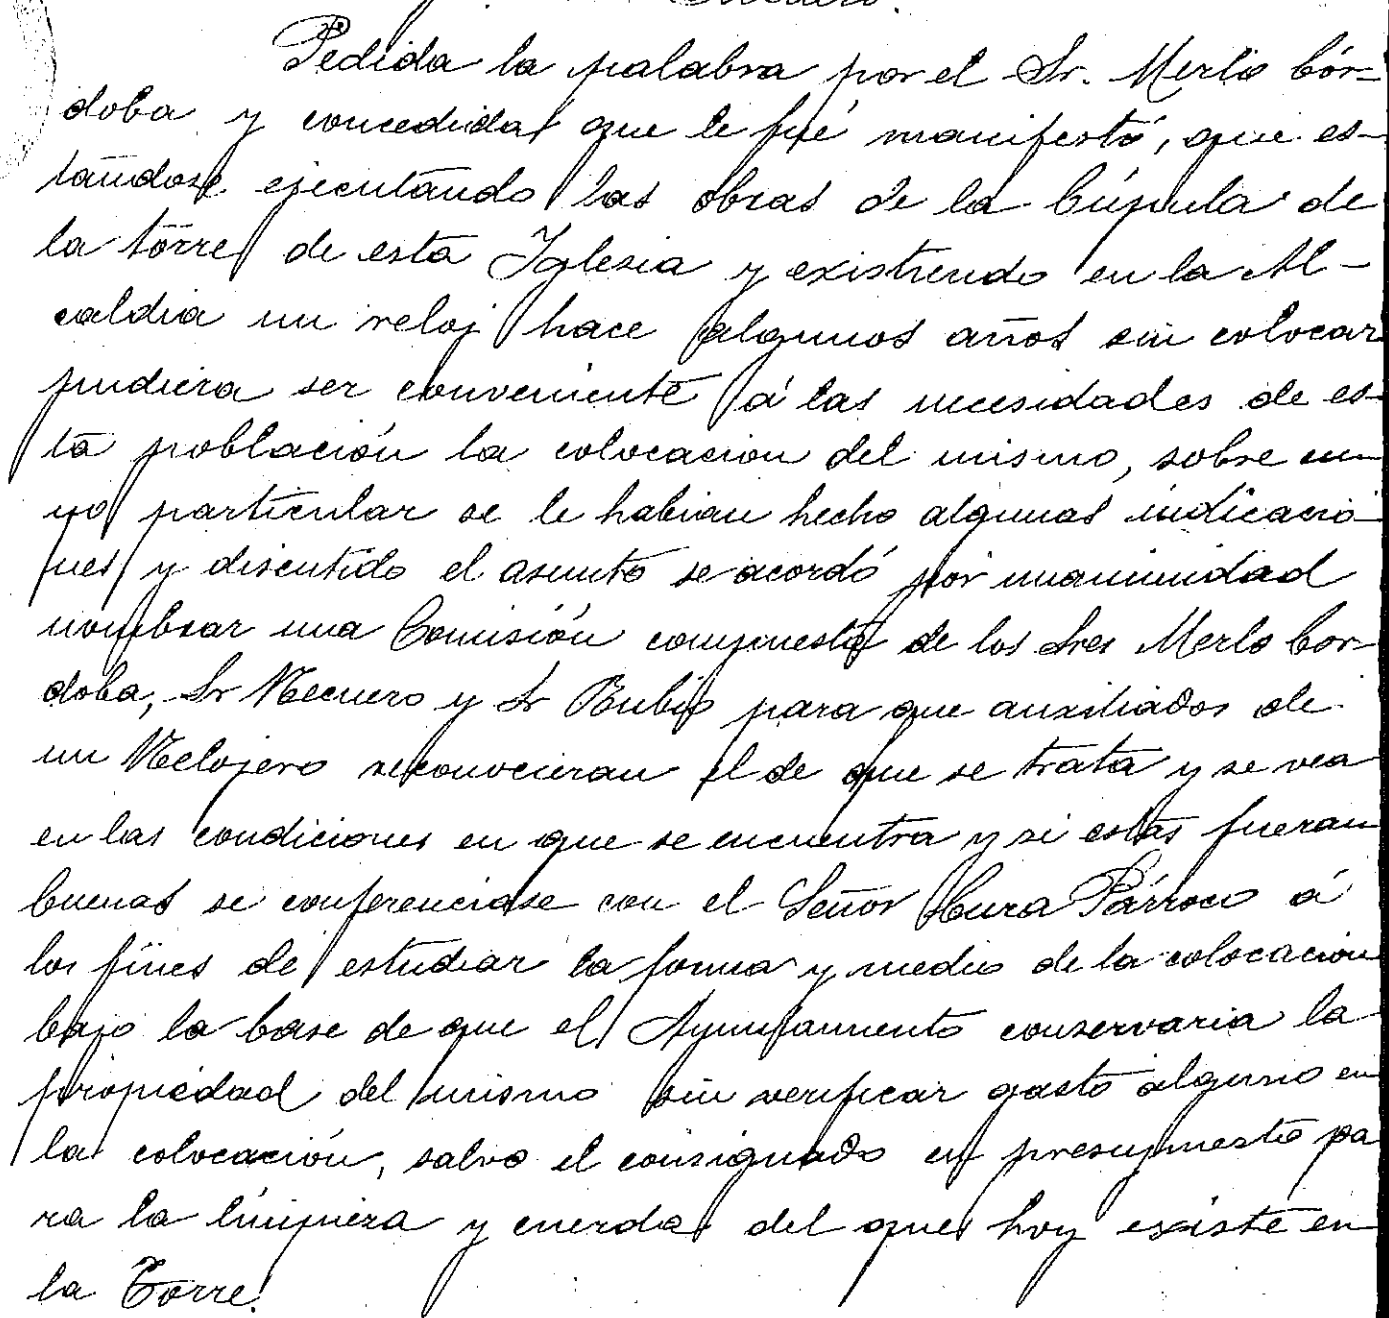 Pedida la palabra por el Sr. Merlo Cór-
doba y concedida que le fué manifestó, que es-
tándose ejecutando las obras de la Cúpula de
la torre de esta Iglesia y existiendo en la Al-
caldia un reloj hace algunos años sin colocar
pudiera ser conveniente á las necesidades de es-
ta población la colocacion del mismo, sobre cu-
yo particular se le habian hecho algunas indicacio-
nes y discutido el asunto se acordó por unanimidad
nombrar una Comisión compuesta de los Sres Merlo Cor-
doba, Sr Recuero y Sr Rubio para que auxiliados de
un Relojero reconocieran el de que se trata y se vea
en las condiciones en que se encuentra y si estas fueran
buenas se conferenciase con el Señor Cura Párroco á
los fines de estudiar la forma y medio de la colocación
bajo la base de que el Ayuntamiento conservaria la
propiedad del mismo sin verificar gasto alguno en
la colocación, salvo el consignado en presupuesto pa
ra la limpieza y cuerda del que hoy existe en
la Torre.